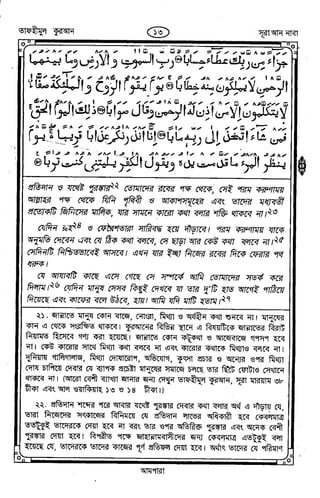 তাফহীমুল কুরআন
১৩
সূরা আন নাবা
جَزَآءً مِّنْ رَّبِّكَ عَطَآءً حِسَابًا رَّبِّ السَّمٰوٰتِ وَ الْاَرْضِ وَمَا بَيْنَهُمَا
الرَّحْمٰنِ لَا يَمْلِكُوْنَ مِنْهُ خِطَابًا يَوْمَ يَقُوْمُ الرُّوْحُ وَ الْمَلٰٓئِكَةُ صَفًّا
لَّا يَتَكَلَّمُوْنَ اِلَّا مَنْ اَذِنَ لَهُ الرَّحْمٰنُ وَقَالَ صَوَابًا ذٰلِكَ الْيَوْمُ الْحَقُّ
فَمَنْ شَآءَ اتَّخَذَ اِلٰى رَبِّهٖ مَاٰبًا اِنَّآ اَنْذَرْنٰكُمْ عَذَابًا قَرِيْبًا يَّوْمَ
يَنْظُرُ الْمَرْءُ مَا قَدَّمَتْ يَدٰهُ وَيَقُوْلُ الْكٰفِرُ يٰلَيْتَنِيْ كُنْتُ تُرٰبًا
প্রতিদান ও যথেষ্ট পুরস্কার২২ তোমাদের রবের পক্ষ থেকে, সেই পরম করুণাময়
আল্লাহর পক্ষ থেকে যিনি পৃথিবী ও আকাশসমূহের এবং তাদের মধ্যবর্তী
প্রত্যেকটি জিনিসের মালিক, যার সামনে কারো কথা বলার শক্তি থাকবে না।২৩
যেদিন রূহ২৪ ও ফেরেশতারা সারিবদ্ধ হয়ে দাঁড়াবে। পরম করুণাময় যাকে
অনুমতি দেবেন এবং যে ঠিক কথা বলবে, সে ছাড়া আর কেউ কথা বলবে না।২৫
সেদিনটি নিশ্চিতভাবেই আসবে। এখন যার ইচ্ছা নিজের রবের দিকে ফেরার পথ
ধরুক।
যে আযাবটি কাছে এসে গেছে সে সম্পর্কে আমি তোমাদের সতর্ক করে
দিলাম।২৬ যেদিন মানুষ সেসব কিছুই দেখবে যা তার দু'টি হাত আগেই পাঠিয়ে
দিয়েছে এবং কাফের বলে উঠবে, হায়! আমি যদি মাটি হতাম।২৭
২১. জান্নাতে মানুষ কোন বাজে, নোংরা, মিথ্যা ও অর্থহীন কথা শুনবে না। মানুষের
কান এ থেকে সংরক্ষিত থাকবে। কুরআনের বিভিন্ন স্থানে এ বিষয়টিকে জান্নাতের বিরাট
নিয়ামত হিসেবে গণ্য করা হয়েছে। জান্নাতে কোন কটুকথা ও আজেবাজে গপসপ হবে
না। কেউ কারোর সাথে মিথ্যা কথা বলবে না এবং কারোর কথাকে মিথ্যাও বলবে না।
দুনিয়ায় গালিগালাজ, মিথ্যা দোষারোপ, অভিযোগ, কুৎসা প্রচার ও অন্যের ওপর মিথ্যা
দোষ চাপিয়ে দেবার যে ব্যাপক প্রচেষ্টা মানুষের সমাজে চলছে তার ছিঁটে ফোটাও সেখানে
থাকবে না। (আরো বেশী ব্যাখ্যা জানার জন্য দেখুন তাফহীমুল কুরআন, সূরা মারয়াম ৩৮
টীকা এবং আল ওয়াকিয়াহ ১৩ ও ১৪ টীকা।)
২২. প্রতিদান শব্দের পরে আবার যথেষ্ট পুরস্কার দেবার কথা বলার অর্থ এ দাঁড়ায় যে,
তারা নিজেদের সৎকাজের বিনিময়ে যে প্রতিদান লাভের অধিকারী হবে কেবলমাত্র
ততটুকুই তাদেরকে দেয়া হবে না বরং তার ওপর অতিরিক্ত পুরস্কার এবং অনেক বেশী
পুরস্কার দেয়া হবে। বিপরীত পক্ষে জাহান্নামবাসীদের জন্য কেবলমাত্র এতটুকুই বলা
হয়েছে যে, তাদেরকে তাদের কাজের পূর্ণ প্রতিফল দেয়া হবে। অর্থাৎ তাদের যে পরিমাণ
আমপারা